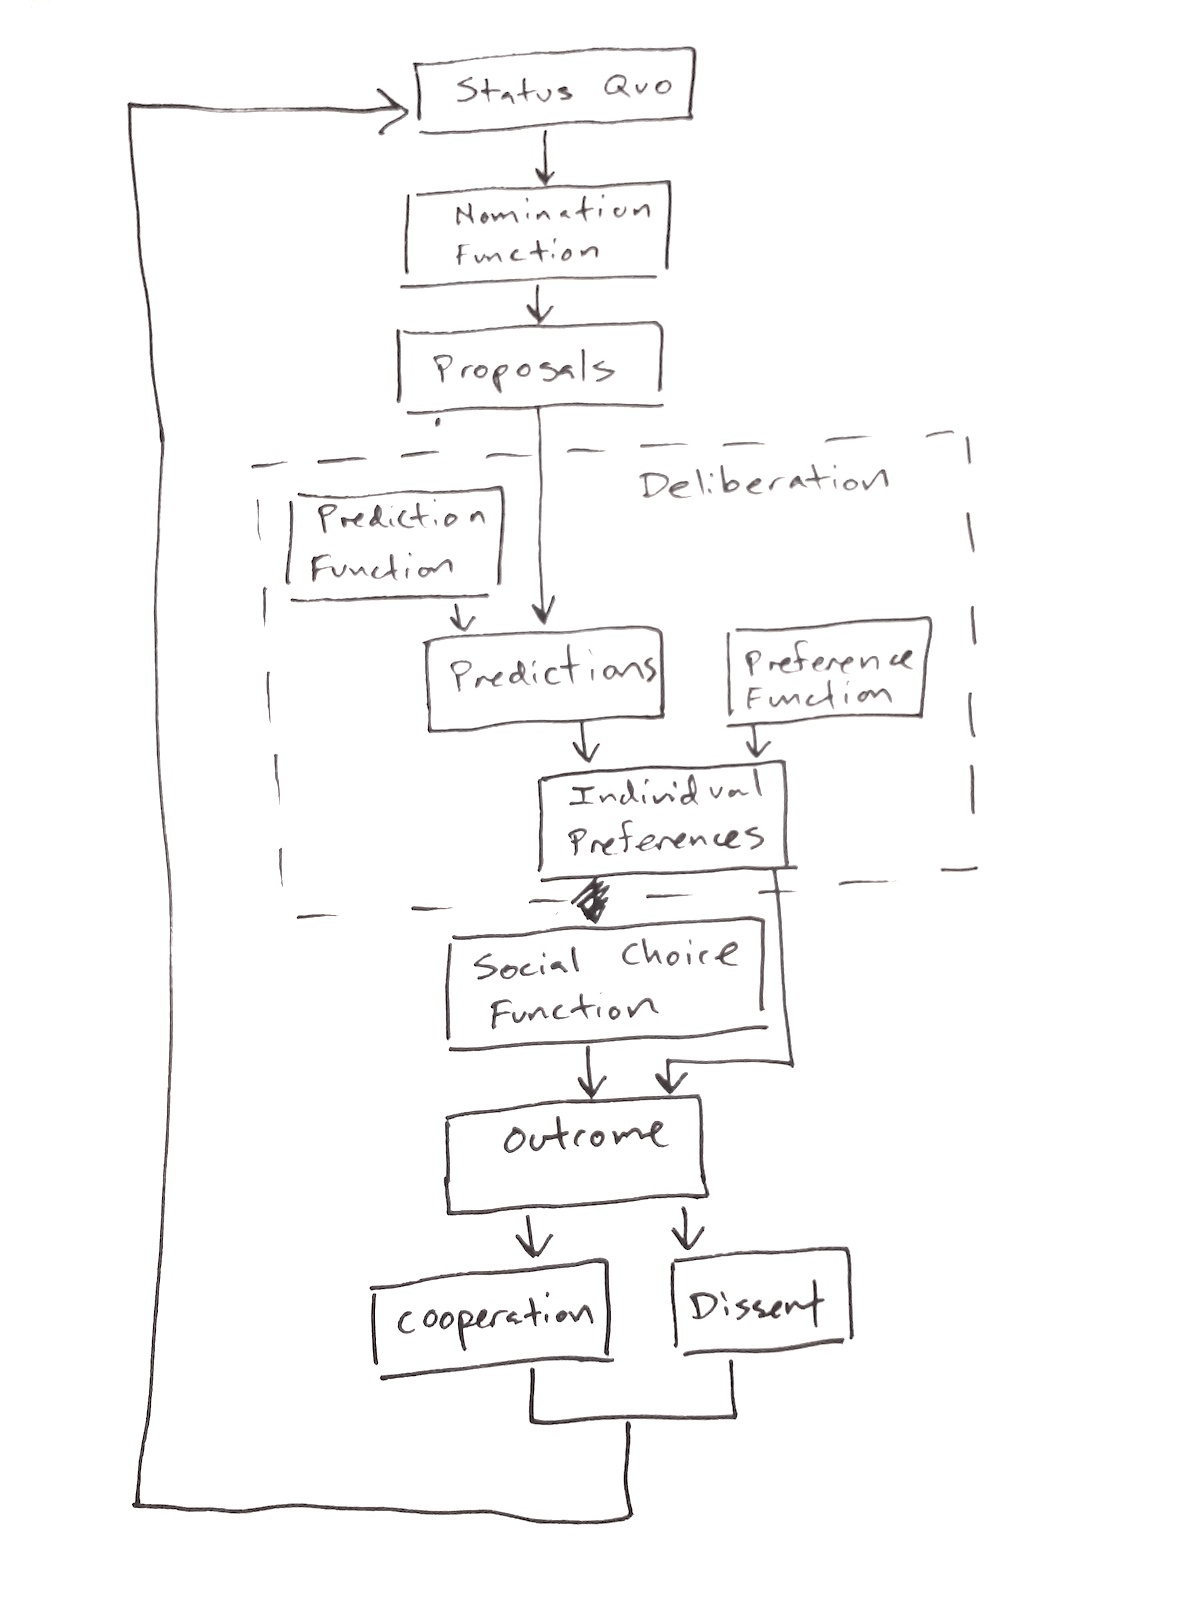 Status Quo
Nomination
Function
Proposals
Deliberation
Prediction
Function
Predictions
Preference
Function
Individual
Preferences
Social Choice
Function
Outcome
Cooperation
Dissent